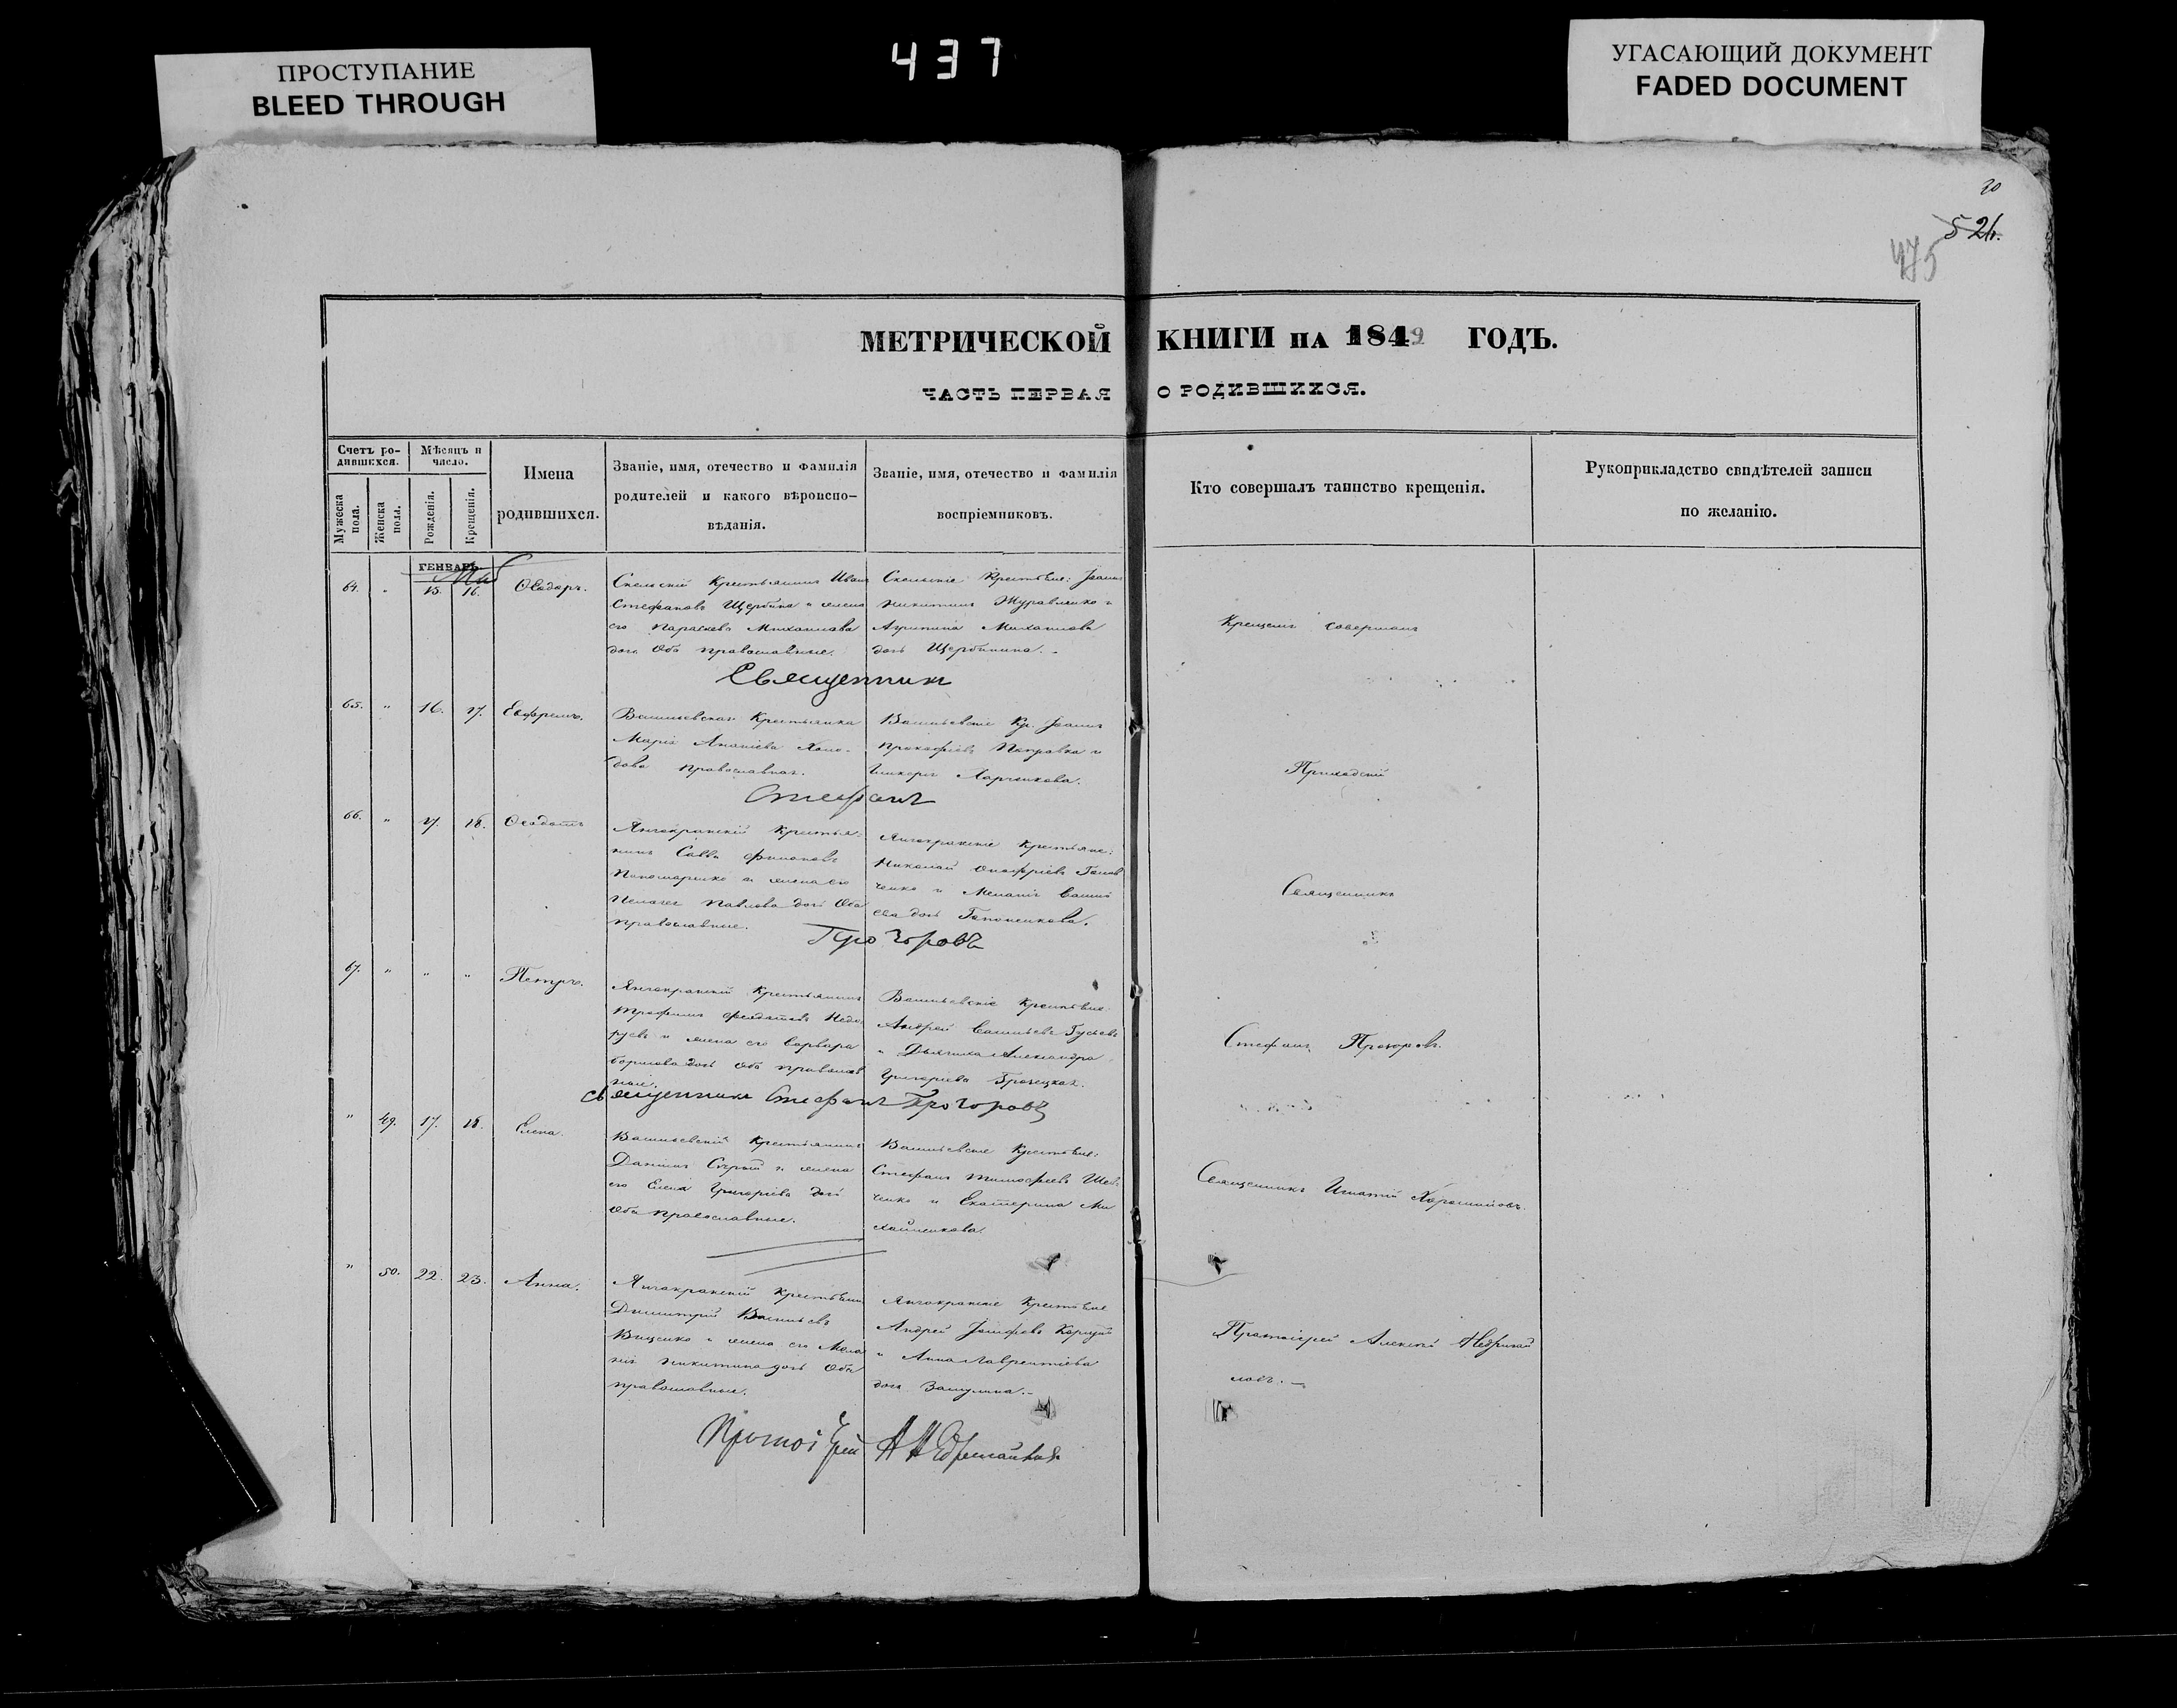 ПРОСТУПАНИЕ
BLEED THROUGH
437
УГАСАЮЩИЙ ДОКУМЕНТ
FADED DOCUMENT
20
526.
475
МЕТРИЧЕСКОЙ КНИГИ НА 1849 ГОДЪ.
ЧАСТЬ ПЕРВАЯ О РОДИВШИХСЯ.
Счетъ ро-
дившихся.
Мужеска
пола.
Женска
пола.
Мѣсяцъ и
число.
Рожденія.
Крещенія.
Имена
родившихся.
Званіе, имя, отечество и фамилія
родителей и какого вѣроиспо-
вѣданія.
Званіе, имя, отечество и фамилія
воспріемниковъ.
Кто совершалъ таинство крещенія.
Рукоприкладство свидѣтелей записи
по желанію.
ГЕНВАРЬ.
Май
64. " 15. 16. Ѳеодоръ.
Скельскій Крестьянинъ Иванъ
Стефановъ Щербина и жена
его Параскева Михаилова
дочь Оба православные.
Скельскіе Крестьяне: Іоаннъ
Никитинъ Журавленко и
Агрипина Михаилова
дочь Щербинина.
Крещеніе совершалъ
Священникъ
65. " 16. 17. Евфремъ.
Васильевская Крестьянка
Марія Ананіева
православная.
Васильевскіе Кр. Іоаннъ
Прокофіевъ и
Харченкова.
Приходскій
Стефанъ
66. " 17. 18. Ѳеодотъ
Янчокракскій Крестья-
нинъ Савва Филиповъ
Пономаренко и жена его
Пелагея Павлова дочь Оба
православные.
Янчокракскіе Крестьяне:
Николай Онофріевъ Гапон
ченко и Меланія Васил
ева дочь Гапоненкова.
Священникъ
Прохоровъ
67. " " " Петръ.
Янчокракскій Крестьянинъ
Трофимъ Феодотовъ
и жена его Варвара
Борисова дочь Оба православ
ные.
Васильевскіе Крестьяне
Андрей Васильевъ Гусевъ
и Дьячиха Александра
Григоріева
Стефанъ Прохоровъ.
Священникъ Стефанъ Прохоровъ
" 49. 17. 18. Елена.
Васильевскій Крестьянинъ
Даніилъ Сѣрый и жена
его Елена Григоріева дочь
Оба православные.
Васильевскіе Крестьяне:
Стефанъ Тимофеевъ Шев
ченко и Екатерина Ми
хайленкова.
Священникъ Игнатій Хорошиловъ.
" 50. 22. 23. Анна.
Янчокракскій Крестьянинъ
Димитрій Васильевъ
Виценко и жена его Мела
нія Никитина дочь Оба
православные.
Янчокракскіе Крестьяне
Андрей Іосифовъ
и Анна Лаврентіева
дочь
Протоіерей Алексій
ловъ.
Протоіерей